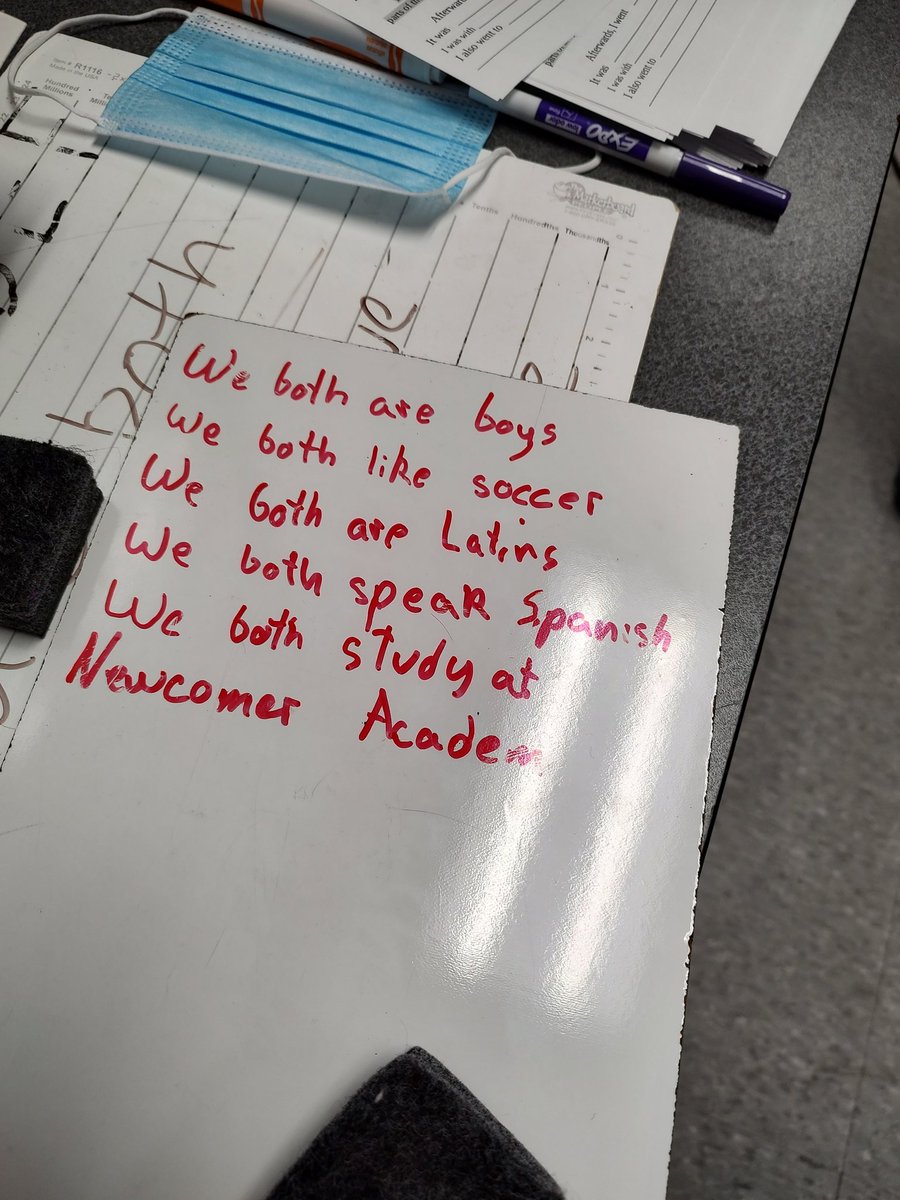 We both are boys
We both like soccer
We both are Latins
We both speak Spanish
We both study at
Newcomer Academ
both
Item # R1116
Made in the USA
Hundred
Millions
Tenths
Hundredths
Thousandths
0
1
2
EXPO
low odor
parts of the
Afterwards
It was
I was with
I also went to
Afterwards, I went
It was
I was with
I also went to